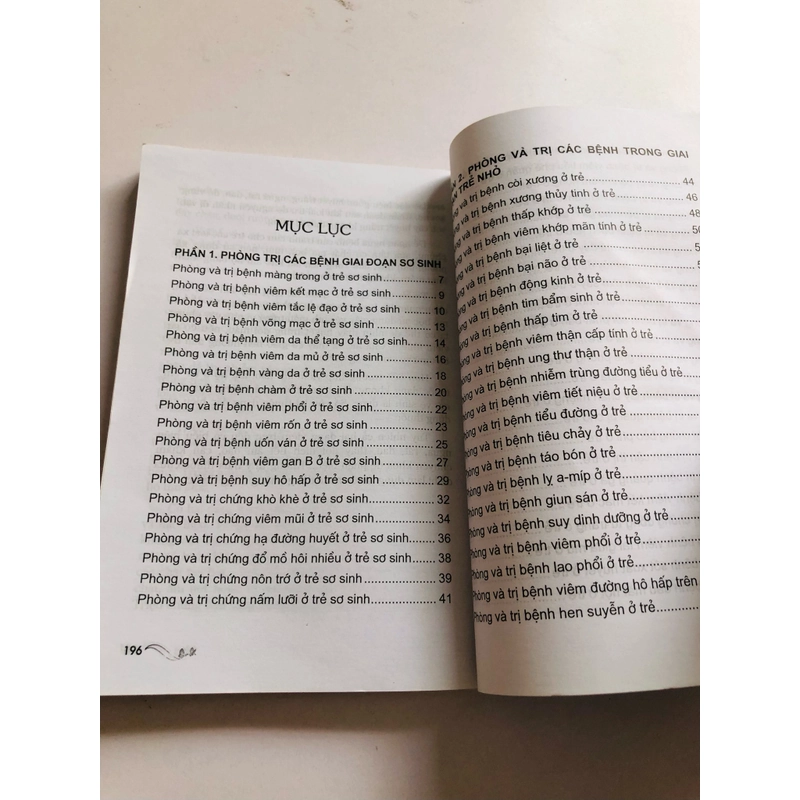 MỤC LỤC
PHẦN 1. PHÒNG TRỊ CÁC BỆNH GIAI ĐOẠN SƠ SINH
Phòng và trị bệnh màng trong ở trẻ sơ sinh 7
Phòng và trị bệnh viêm kết mạc ở trẻ sơ sinh 9
Phòng và trị bệnh viêm tắc lệ đạo ở trẻ sơ sinh 10
Phòng và trị bệnh võng mạc ở trẻ sơ sinh 13
Phòng và trị bệnh viêm da thể tạng ở trẻ sơ sinh 14
Phòng và trị bệnh viêm da mủ ở trẻ sơ sinh 16
Phòng và trị bệnh vàng da ở trẻ sơ sinh 18
Phòng và trị bệnh chàm ở trẻ sơ sinh 20
Phòng và trị bệnh viêm phổi ở trẻ sơ sinh 22
Phòng và trị bệnh viêm rốn ở trẻ sơ sinh 23
Phòng và trị bệnh uốn ván ở trẻ sơ sinh 25
Phòng và trị bệnh viêm gan B ở trẻ sơ sinh 27
Phòng và trị bệnh suy hô hấp ở trẻ sơ sinh 29
Phòng và trị chứng khò khè ở trẻ sơ sinh 32
Phòng và trị chứng viêm mũi ở trẻ sơ sinh 34
Phòng và trị chứng hạ đường huyết ở trẻ sơ sinh 36
Phòng và trị chứng đổ mồ hôi nhiều ở trẻ sơ sinh 38
Phòng và trị chứng nôn trớ ở trẻ sơ sinh 39
Phòng và trị chứng nấm lưỡi ở trẻ sơ sinh 41
196
2. PHÒNG VÀ TRỊ CÁC BỆNH TRONG GIAI
TRẺ NHỎ
và trị bệnh còi xương ở trẻ 44
và trị bệnh xương thủy tinh ở trẻ 46
và trị bệnh thấp khớp ở trẻ 48
và trị bệnh viêm khớp mãn tính ở trẻ
và trị bệnh bại liệt ở trẻ
và trị bệnh bại não ở trẻ
và trị bệnh động kinh ở trẻ
và trị bệnh tim bẩm sinh ở trẻ
và trị bệnh thấp tim ở trẻ
và trị bệnh viêm thận cấp tính ở trẻ
và trị bệnh ung thư thận ở trẻ
và trị bệnh nhiễm trùng đường tiểu ở trẻ
và trị bệnh viêm tiết niệu ở trẻ
và trị bệnh tiểu đường ở trẻ
và trị bệnh tiêu chảy ở trẻ
và trị bệnh táo bón ở trẻ
và trị bệnh lỵ a-míp ở trẻ
và trị bệnh giun sán ở trẻ
và trị bệnh suy dinh dưỡng ở trẻ
và trị bệnh viêm phổi ở trẻ
và trị bệnh lao phổi ở trẻ
và trị bệnh viêm đường hô hấp trên
và trị bệnh hen suyễn ở trẻ